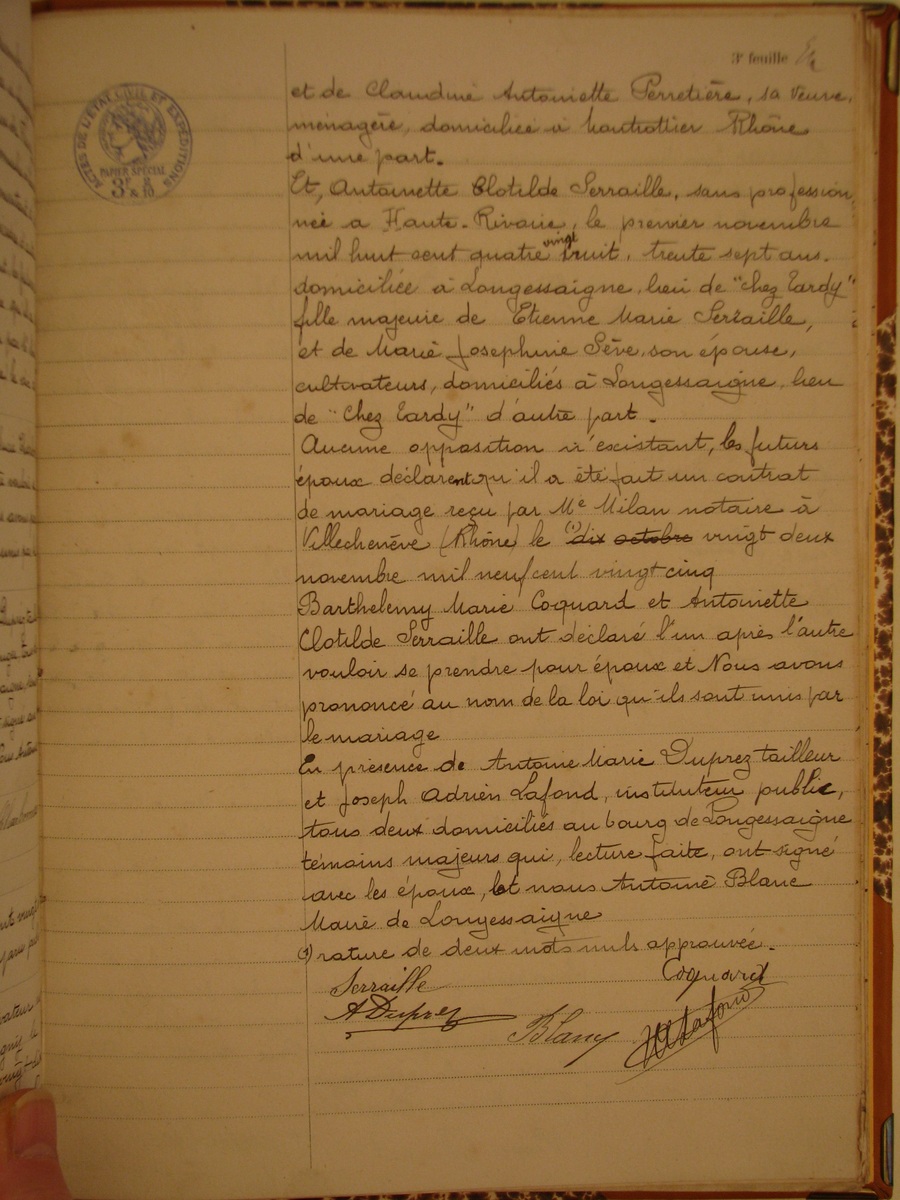 3e feuille
ACTES DE L'ETAT CIVIL ET EXPEDITIONS
PAPIER SPECIAL
3F & 2/10 & 4/10
et de Claudine Antoinette Perretière, sa veuve,
ménagère, domiciliée à Rhône
d'une part.
Et, Antoinette Clotilde Serraille, sans profession
née a Haute-Rivoire, le premier novembre
vingt
mil huit cent quatre huit, trente sept ans.
domiciliée à Longessaigne, lieu de "chez Tardy"
fille majeure de Etienne Marie Serraille,
et de Marie Josephine Sève, son épouse,
cultivateurs, domiciliés à Longessaigne, lieu
de "chez Tardy" d'autre part.
Aucune opposition n'existant, les futurs
époux déclarent qu'il a été fait un contrat
de mariage reçu par Me Milan notaire à
Villechenève (Rhône) le (1) dix octobre vingt deux
novembre mil neuf cent vingt cinq
Barthelemy Marie Coquard et Antoinette
Clotilde Serraille ont déclaré l'un après l'autre
vouloir se prendre pour époux et Nous avons
prononcé au nom de la loi qu'ils sont unis par
le mariage
En présence de Antoine Marie Duprez tailleur
et Joseph Adrien Lafond, instituteur public,
tous deux domiciliés au bourg de Longessaigne
témoins majeurs qui, lecture faite, ont signé
avec les époux, et nous Antoine Blanc
Maire de Longessaigne
(1) rature de deux mots nuls approuvée.
Serraille Coquard
A Duprez
Blanc Lafond